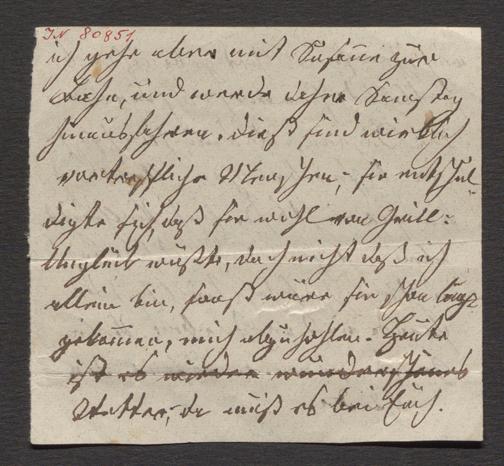 IN 80851
ich gehe aber mit Susanne zur
Bahn, und werde daher Samstag
hinausfahren. Dieß sind wirklich
vortreffliche Menschen; sie entschul-
digte sich, daß sie wohl von
Unglück wußte, doch nicht daß ich
allein bin, sonst wäre sie schon längst
gekommen, mich abzuholen. Heute
ist es wieder wunderschönes
Wetter; da muß es bei Euch.